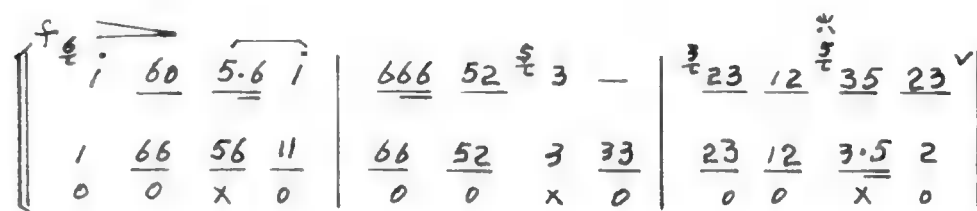 f 6 ※
i 60 5·6 i | 666 52 5 3 — | 3 23 12 5 35 23 ∨
1 66 56 11 | 66 52 3 33 | 23 12 3·5 2
0 0 x 0 | 0 0 x 0 | 0 0 x 0